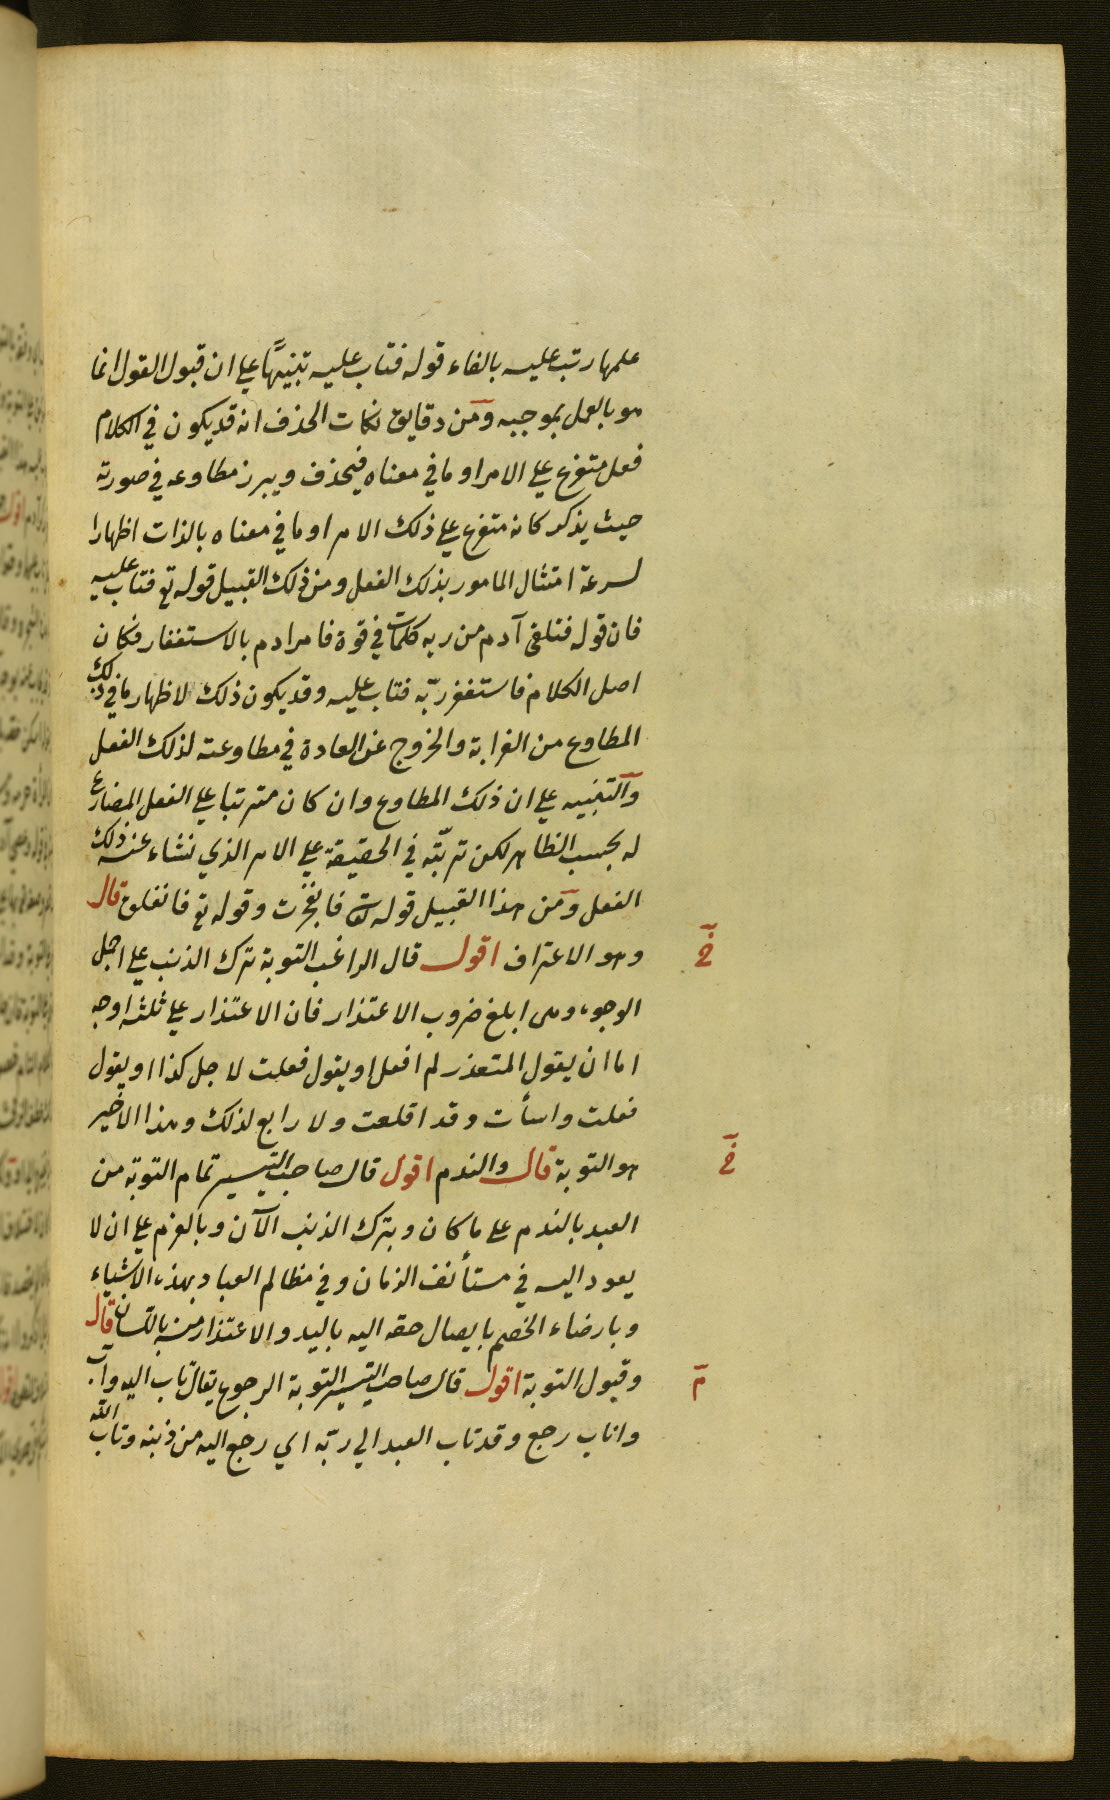 علمها رتب عليه بالفاء قوله فتاب عليه تنبيهًا على ان قبول القول انما
هو بالعمل بموجبه ومن دقايق نكات الحذف انه قد يكون في الكلام
فعل متفرع على الامر او ما في معناه فيحذف ويبرز مطاوعه في صورته
حيث يذكر كانه متفرع على ذلك الامر او ما في معناه بالذات اظهارا
لسرعة امتثال المامور بذلك الفعل ومن ذلك القبيل قوله تع فتاب عليه
فان قوله فتلقى آدم من ربه كلمات في قوة فامر ادم بالاستغفار فكان
اصل الكلام فاستغفر ربّه فتاب عليه وقد يكون ذلك لاظهار ما في ذلك
المطاوع من الغرابة والخروج عن العادة في مطاوعته لذلك الفعل
والتنبيه على ان ذلك المطاوع وان كان مترتبا على الفعل المضارع
له بحسب الظاهر لكن ترتبّه في الحقيقة على الامر الذي نشاء عنه ذلك
الفعل ومن هذا القبيل قوله تع فانفجرت وقوله تع فانفلق قال
وهو الاعتراف اقول قال الراغب التوبة ترك الذنب على اجل
الوجوه وهى ابلغ ضروب الاعتذار فان الاعتذار على ثلثه اوجه
اما ان يقول المتعذر لم افعل او يقول فعلت لاجل كذا او يقول
فعلت واسأت وقد اقلعت ولا رابع لذلك وهذا الاخير
هو التوبة قال والندم اقول قال صاحب التيسير تمام التوبة من
العبد بالندم على ما كان وبترك الذنب الآن وبالعزم على ان لا
يعود اليه في مستأنف الزمان وفي مظالم العباد بهذه الاشياء
وبارضاء الخصم بايصال حقه اليه باليد والاعتذار منه باللسان قال
وقبول التوبة اقول قال صاحب التيسير التوبة الرجوع يقال تاب اليه وآب
واناب رجع وقد تاب العبد الي ربّه اي رجع اليه من ذنبه وتاب الله